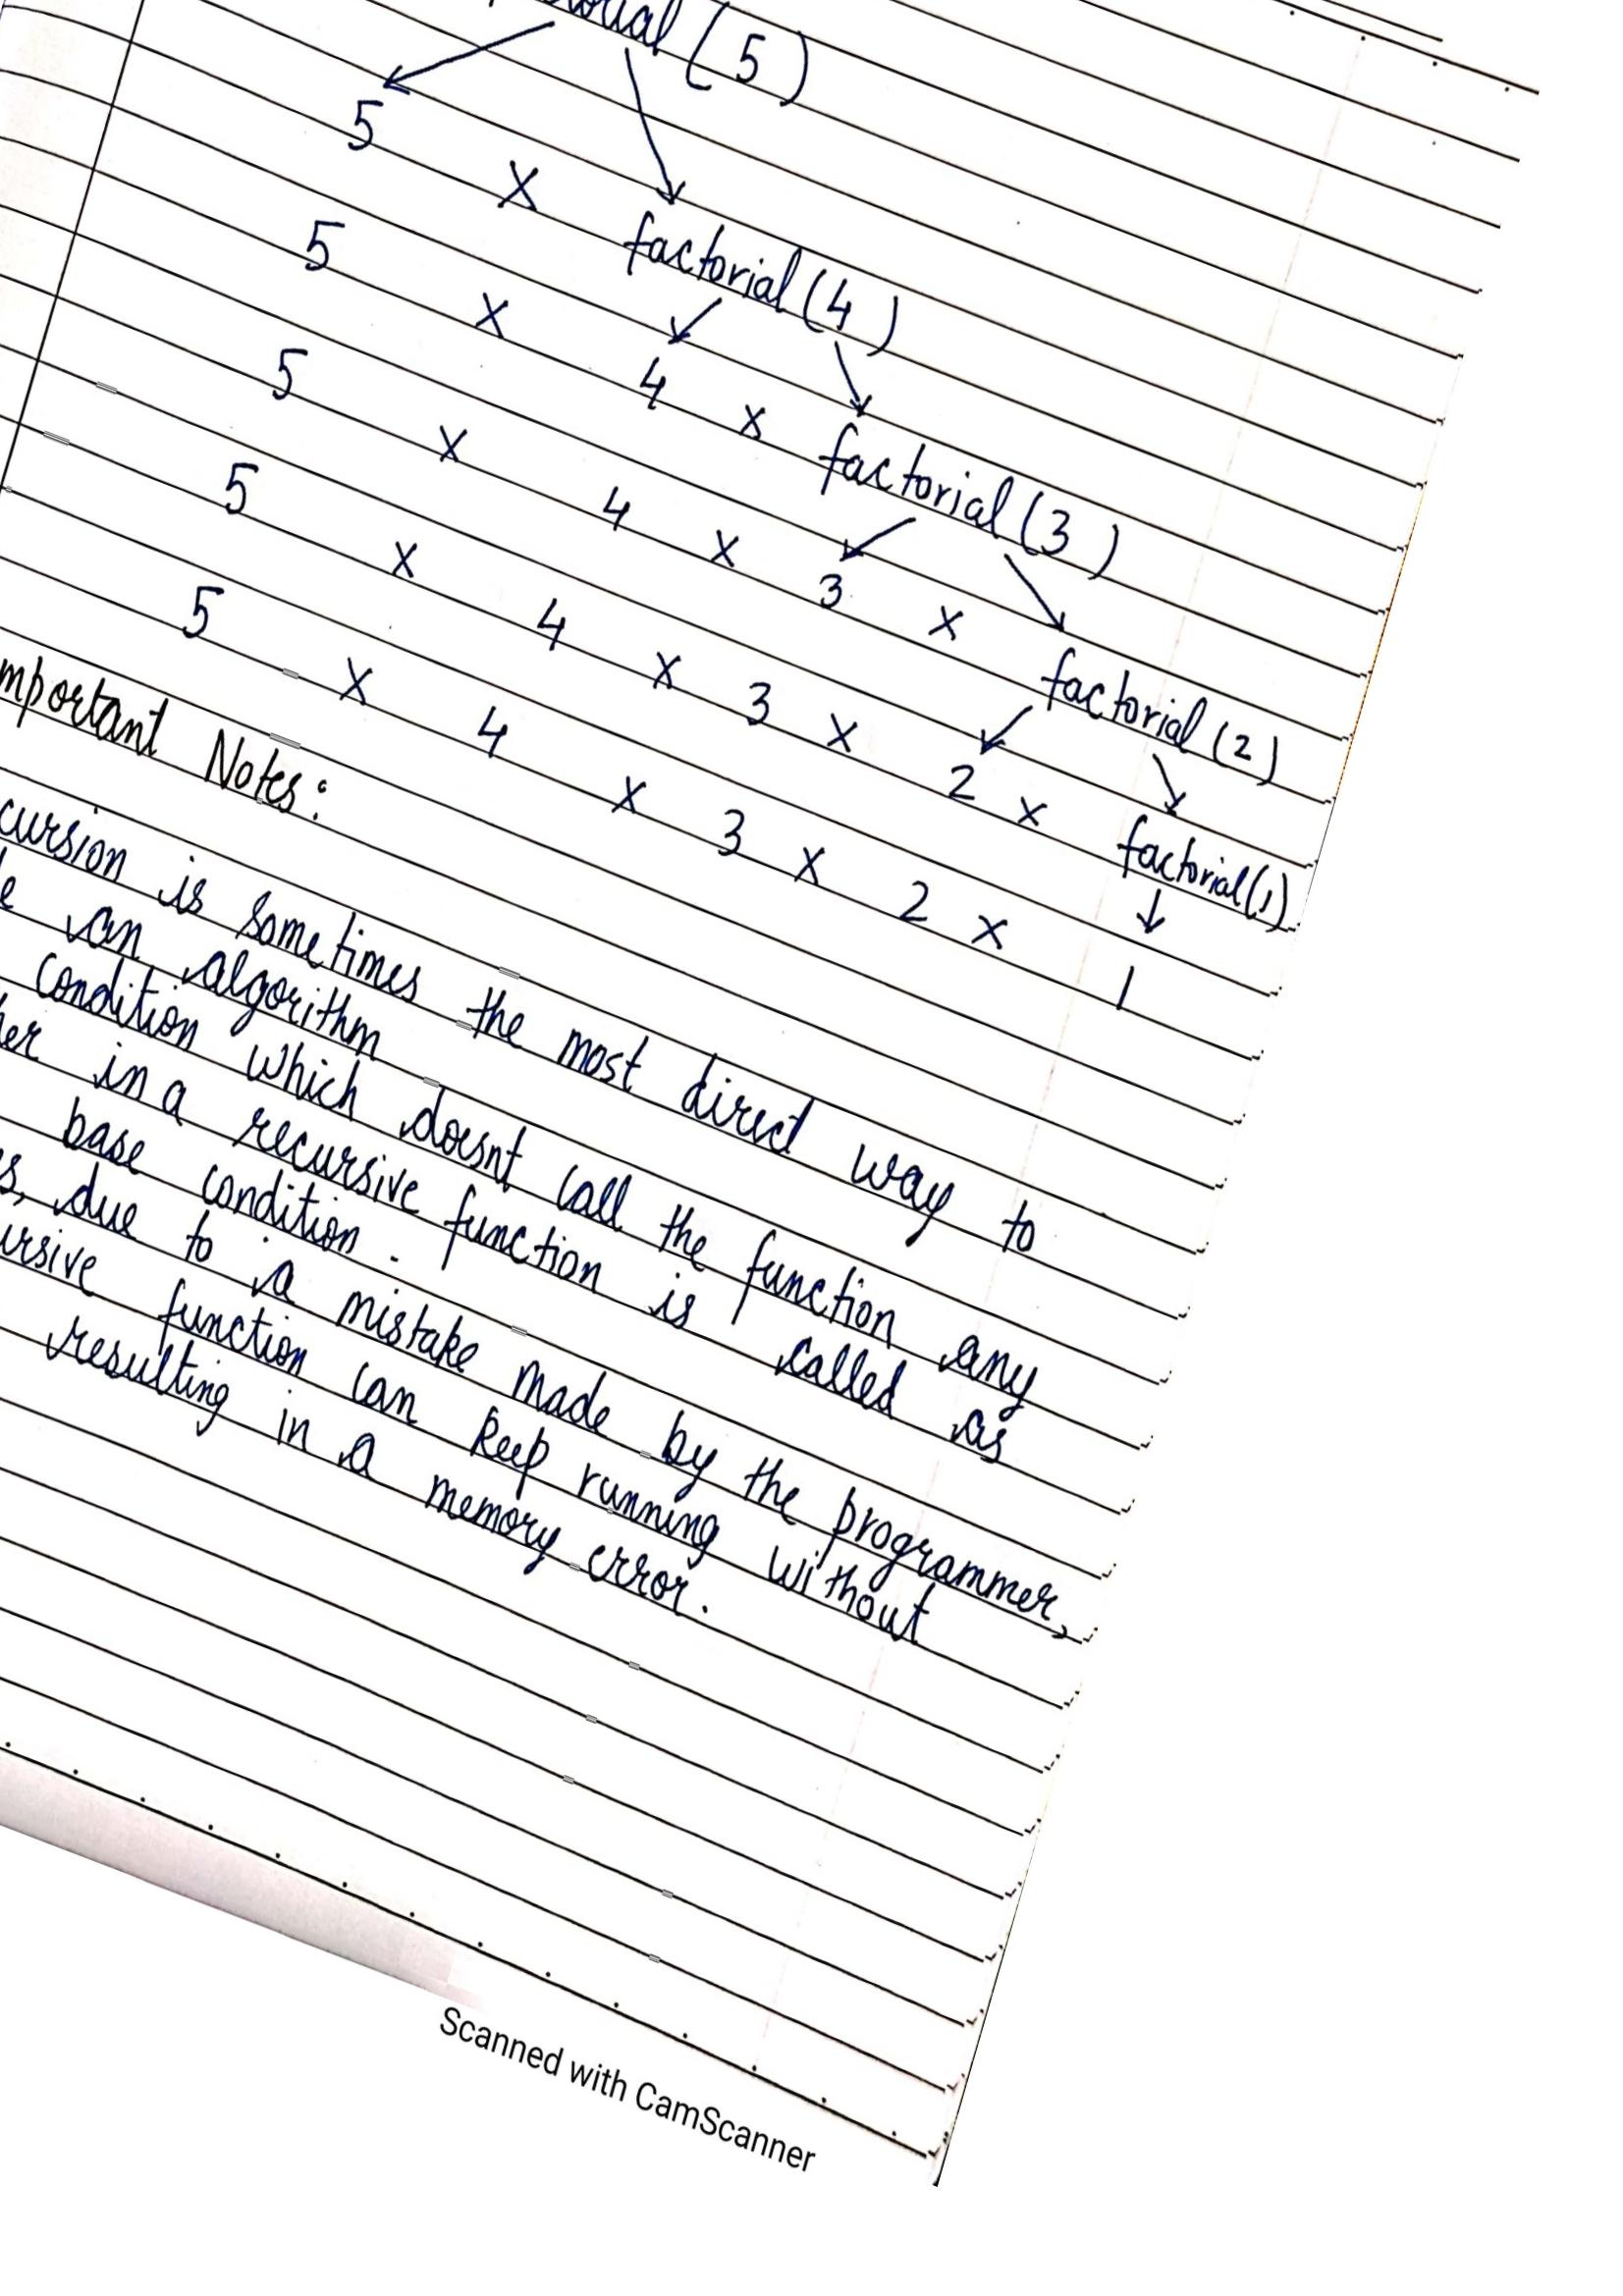 (5)
5 x factorial(4)
5 x 4 x factorial(3)
5 x 4 x 3 x factorial(2)
5 x 4 x 3 x 2 x factorial(1)
5 x 4 x 3 x 2 x 1
mportant Notes:
cursion is sometimes the most direct way to
e an algorithm
condition which doesnt call the function any
her in a recursive function is called as
base condition.
s, due to a mistake made by the programmer,
ursive function can keep running without
resulting in a memory error.
Scanned with CamScanner